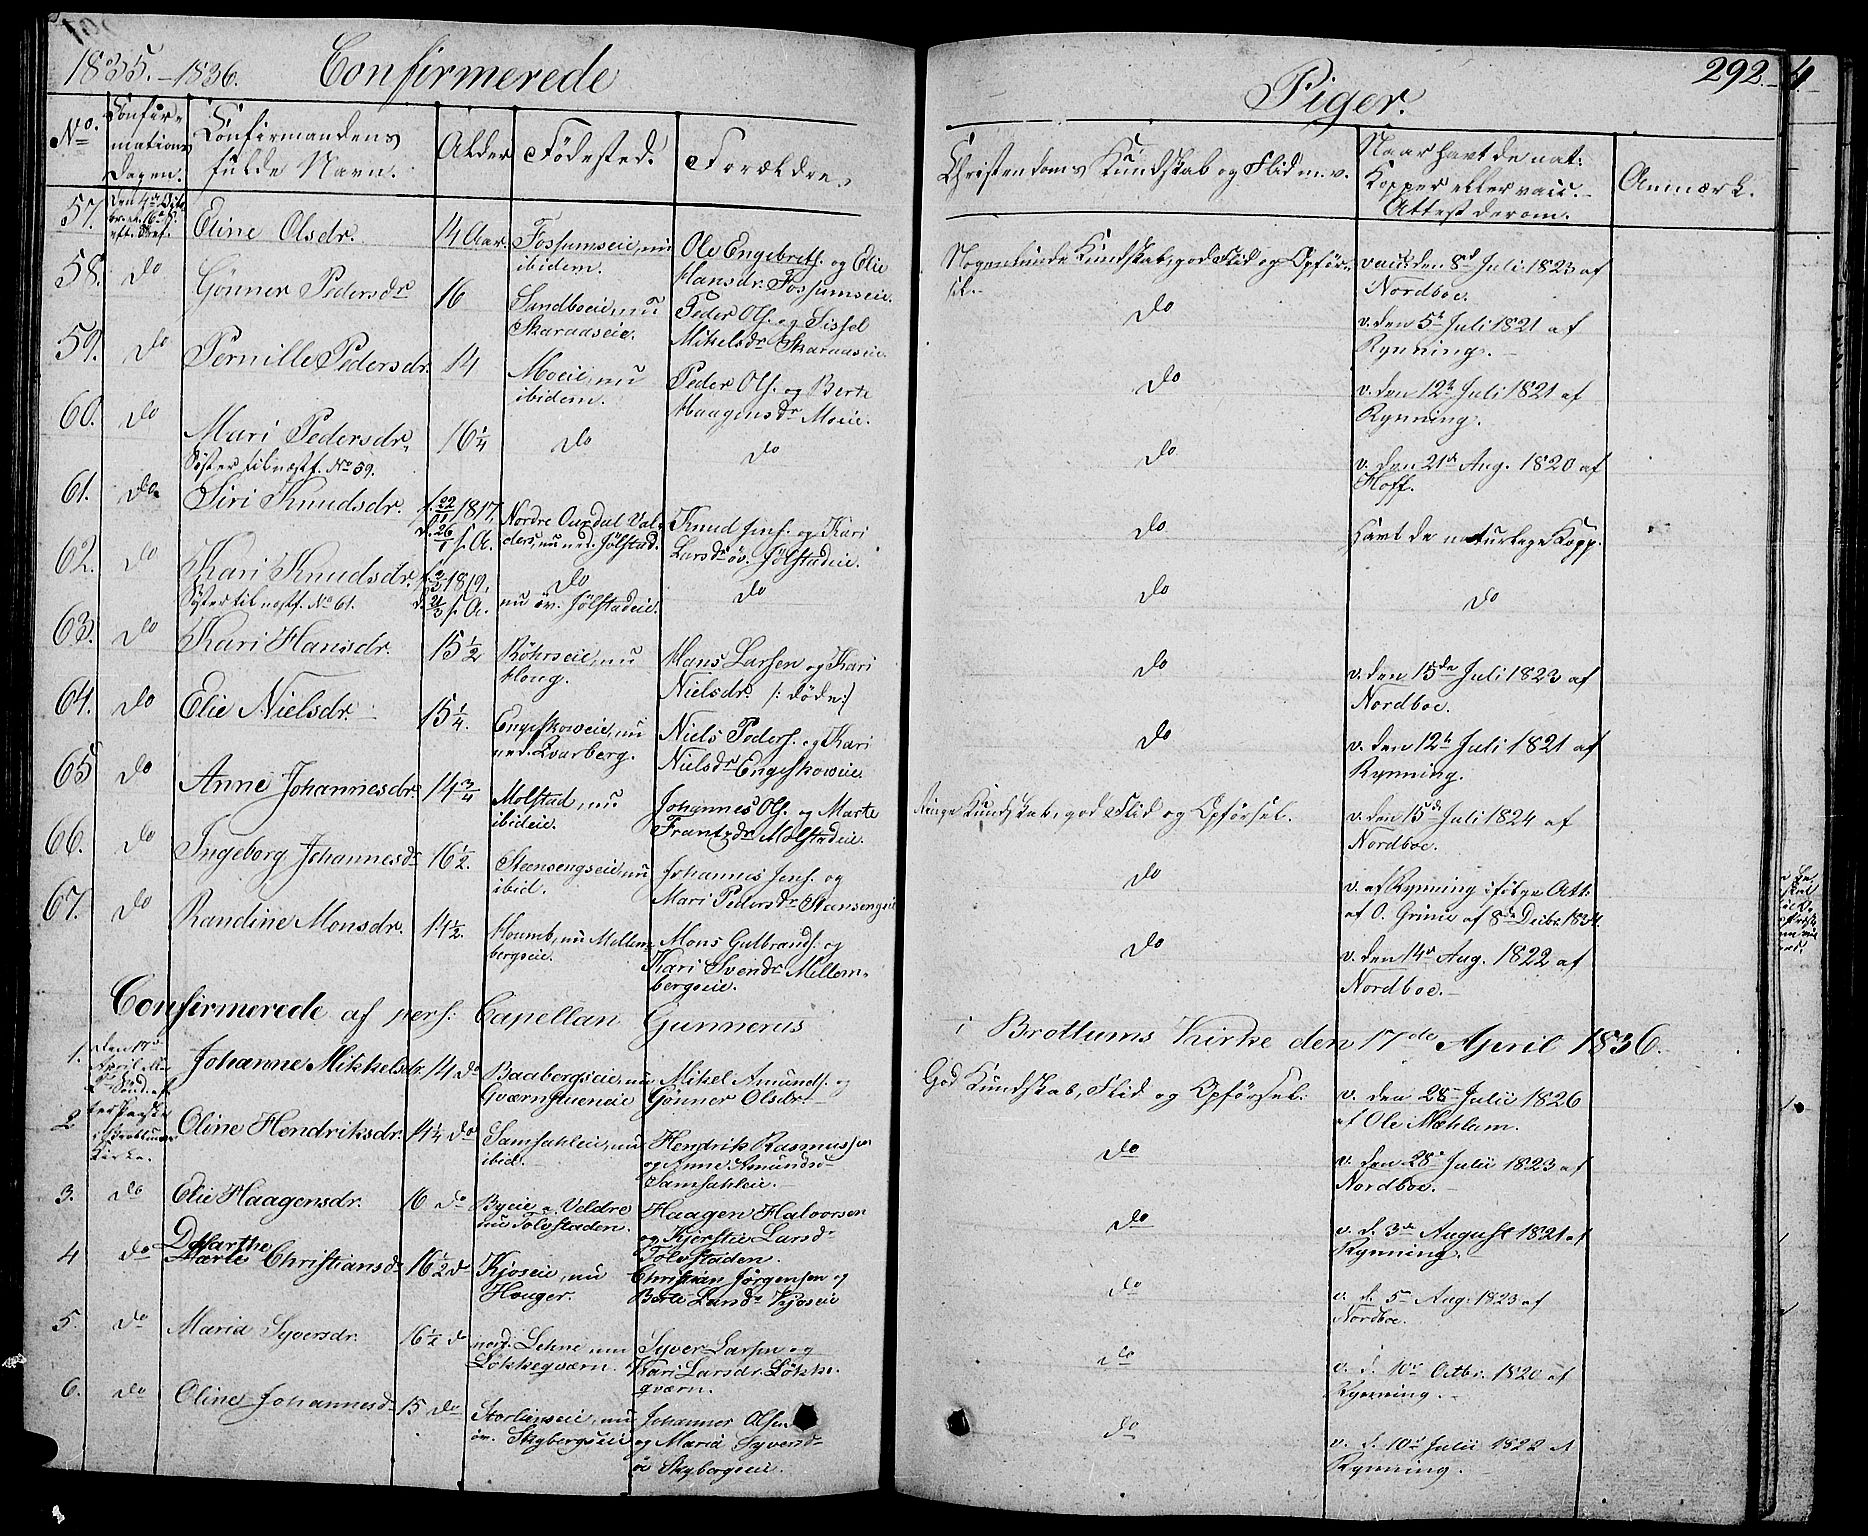 1835.-1836. Confirmerede
Piger. 292.
No. Confirmations Dagen. Confirmandens fulde Navn. Alder Födested. Forældre.
Christendoms Kundskab og Flid m.v. Naar havt de nat: Kopper eller vacc. Attest derom. Anmærk.
57. Eline Olsdr. 14 Aar. Fossumseie, nu ibidem. Ole Engebrets. og Elie Hansdr. Fossumseie. Nogenlunde Kundskab, god Flid og Opförsel. vacc: den 8d Juli 1823 af Nordboe.
58. do Gönner Pedersdr 16 Sandboeie, nu Skaraaseie. Peder Ols. og Sissel Mikelsdr Skaraaseie. do v. den 5t Juli 1821 af Rynning.
59. do Pernille Pedersdr. 14 Moeie, nu ibidem. Peder Ols. og Berte Haagensdr Moeie. do v. den 12te Juli 1821 af Rynning.
60. do Mari Pedersdr. 16¼ do do do v. den 21de Aug. 1820 af Hoff.
Söster til næstf. No 59.
61. do Siri Knudsdr. f. 22/1 1817, d. 26/1 s. A. Nordre Ourdal Valders, nu ned. Jölstad. Knud Jens. og Kari Larsdr öv. Jölstadeie. do Havt de naturlege Kopp.
62. do Kari Knudsdr. f. 3/3 1819, d. 21/3 s. A. do nu öv. Jölstadeie. do do do
Söster til næstf. No 61.
63. do Kari Hansdr. 15½ Röhrseie, nu Hong. Hans Larsen og Kari Nielsdr. /: döde :/ do v. den 15de Juli 1823 af Nordboe.
64. do Elie Nielsdr. 15¼. Engeskoweie, nu ned. Qvarberg. Niels Peders. og Kari Nielsdr Engeskoweie. do v. den 12te Juli 1821 af Rynning.
65 do Anne Johannesdr. 14¾ Molstad, nu ibideie. Johannes Ols. og Marte Frantzdr Molstadeie. Ringe Kundskab, god Flid og Opförsel. v. den 15de Juli 1824 af Nordboe.
66. do Ingeborg Johannesdr 16½. Steensengseie, nu ibid. Johannes Jens. og Mari Pedersdr Stensengeie do v. af Rynning ifölge Att. af O. Grinie af 8de Decbr 1834.
67. do Randine Monsdr. 14½. Houmb, nu Mellembergseie. Mons Gulbrands. og Kari Svendr Mellembergseie. do v. den 14de Aug. 1822 af Nordboe.
Confirmerede af pers: Capellan Gunnerus i Brottums Kirke den 17de April 1836.
1. Den 17de April Söd. efter Paaske i Brottums Kirke. Johanne Mikkelsdr. 14 do Baabergseie, nu Gværnstueneie Mikel Amunds. og Gönner Olsdr God Kundskab, Flid og Opförsel. v. den 28de Julii 1826 af Ole Mæhlum.
2 Oline Hendriksdr. 14¼ do Samsahleie, nu ibid. Hendrik Rasmussen og Anne Amundsd Samsahleie. do v. den 28de Julii 1823 af Nordboe.
3. do Elie Haagensdr. 16 do Byeie a Veldre nu Tolvstaden. Haagen Halvorsen og Kjerstie Larsdr Tolvstaden. do v. d. 3de August 1821 af Rynning.
4 do Marthe Christiansdr 16½ do Kjoseie, nu Houger. Christian Jörgensen og Berte Larsdr Kjoseie do v. d. 5te Aug. 1823 af Nordboe.
5. do Maria Syversdr. 16½ do nord. Lehne nu Lökkegværn. Syver Larsen og Kari Larsdr. Lökkegværn. do v. d. 10de Octbr. 1820 af Rynning.
6. do Oline Johannesdr 15 do Storlienseie, nu öv. Skybergseie Johannes Olsen og Maria Syversdr öv Skybergseie. do v. d. 10de Julii 1822 af Rynning.